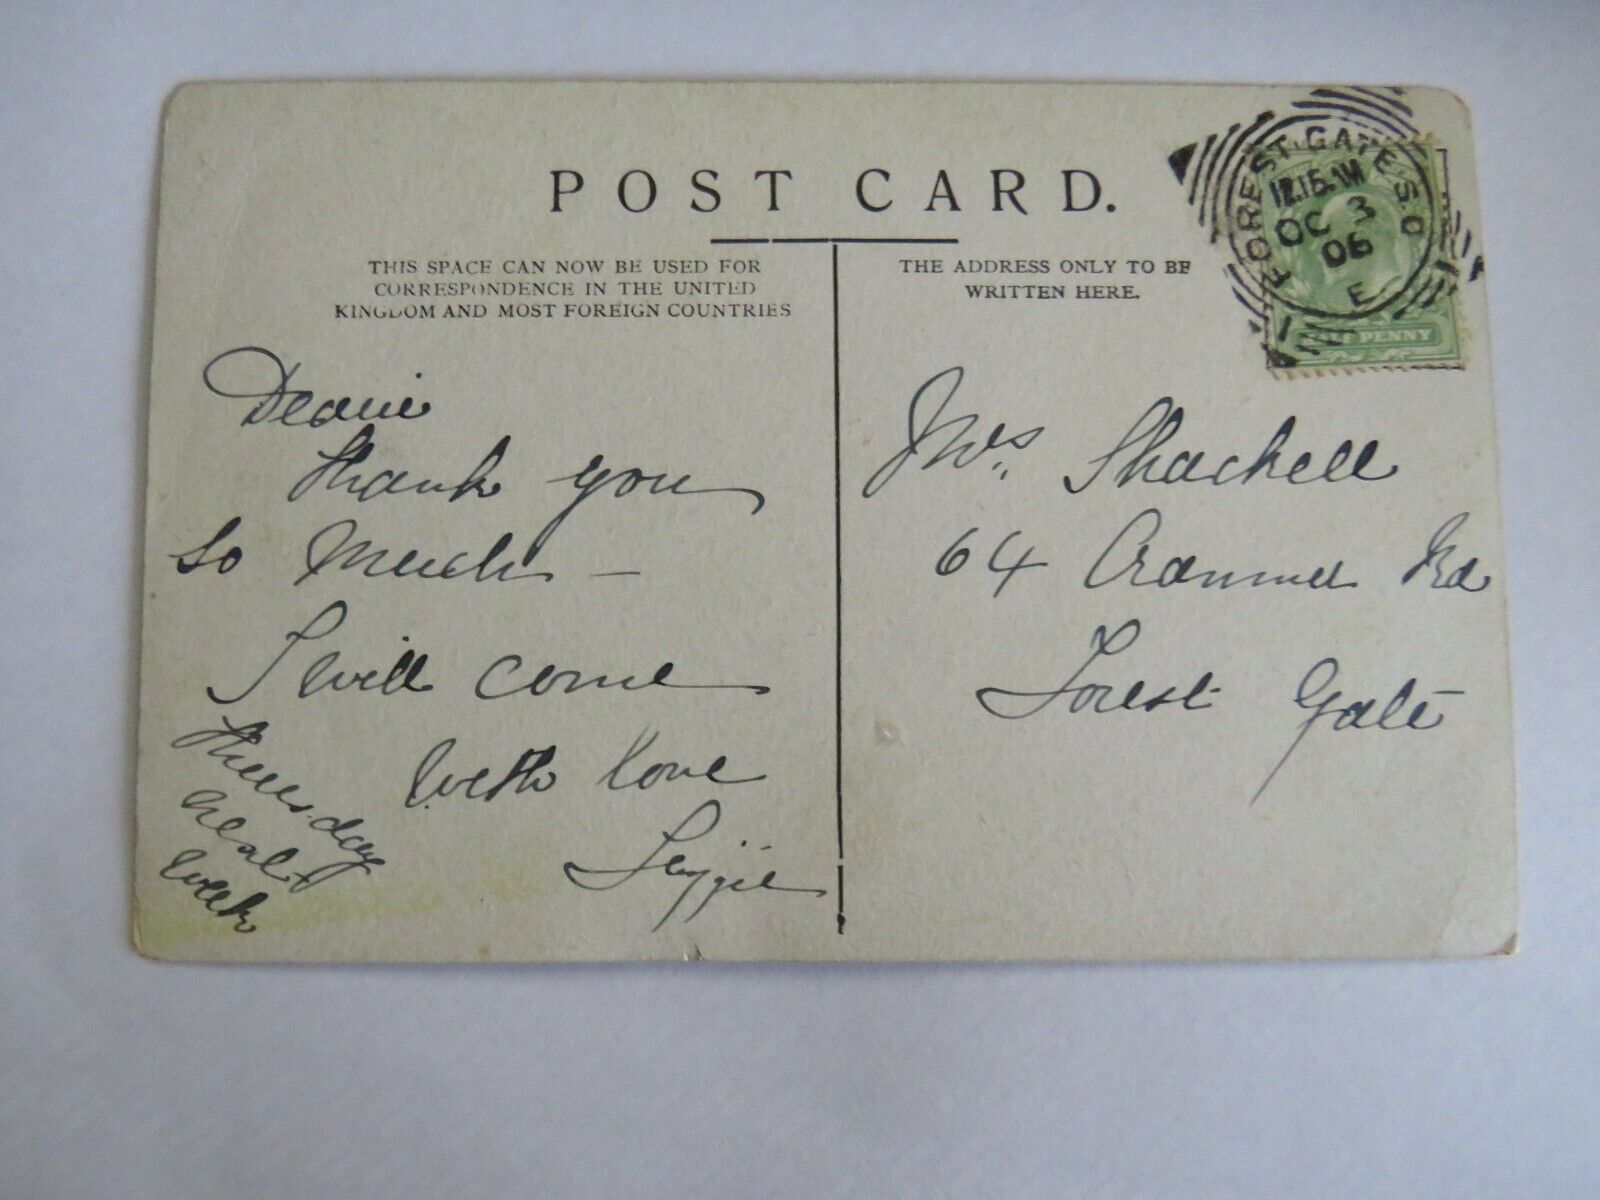 POST CARD.
THIS SPACE CAN NOW BE USED FOR
CORRESPONDENCE IN THE UNITED
KINGDOM AND MOST FOREIGN COUNTRIES
THE ADDRESS ONLY TO BE
WRITTEN HERE.
FOREST.GATE.S.O
OC 3
06
E
HALF PENNY
Dearie
thank you
so much –
I will come
Thursday
next
week
with love
Mrs. Shackell
64 Cranmer Rd
Forest Gate